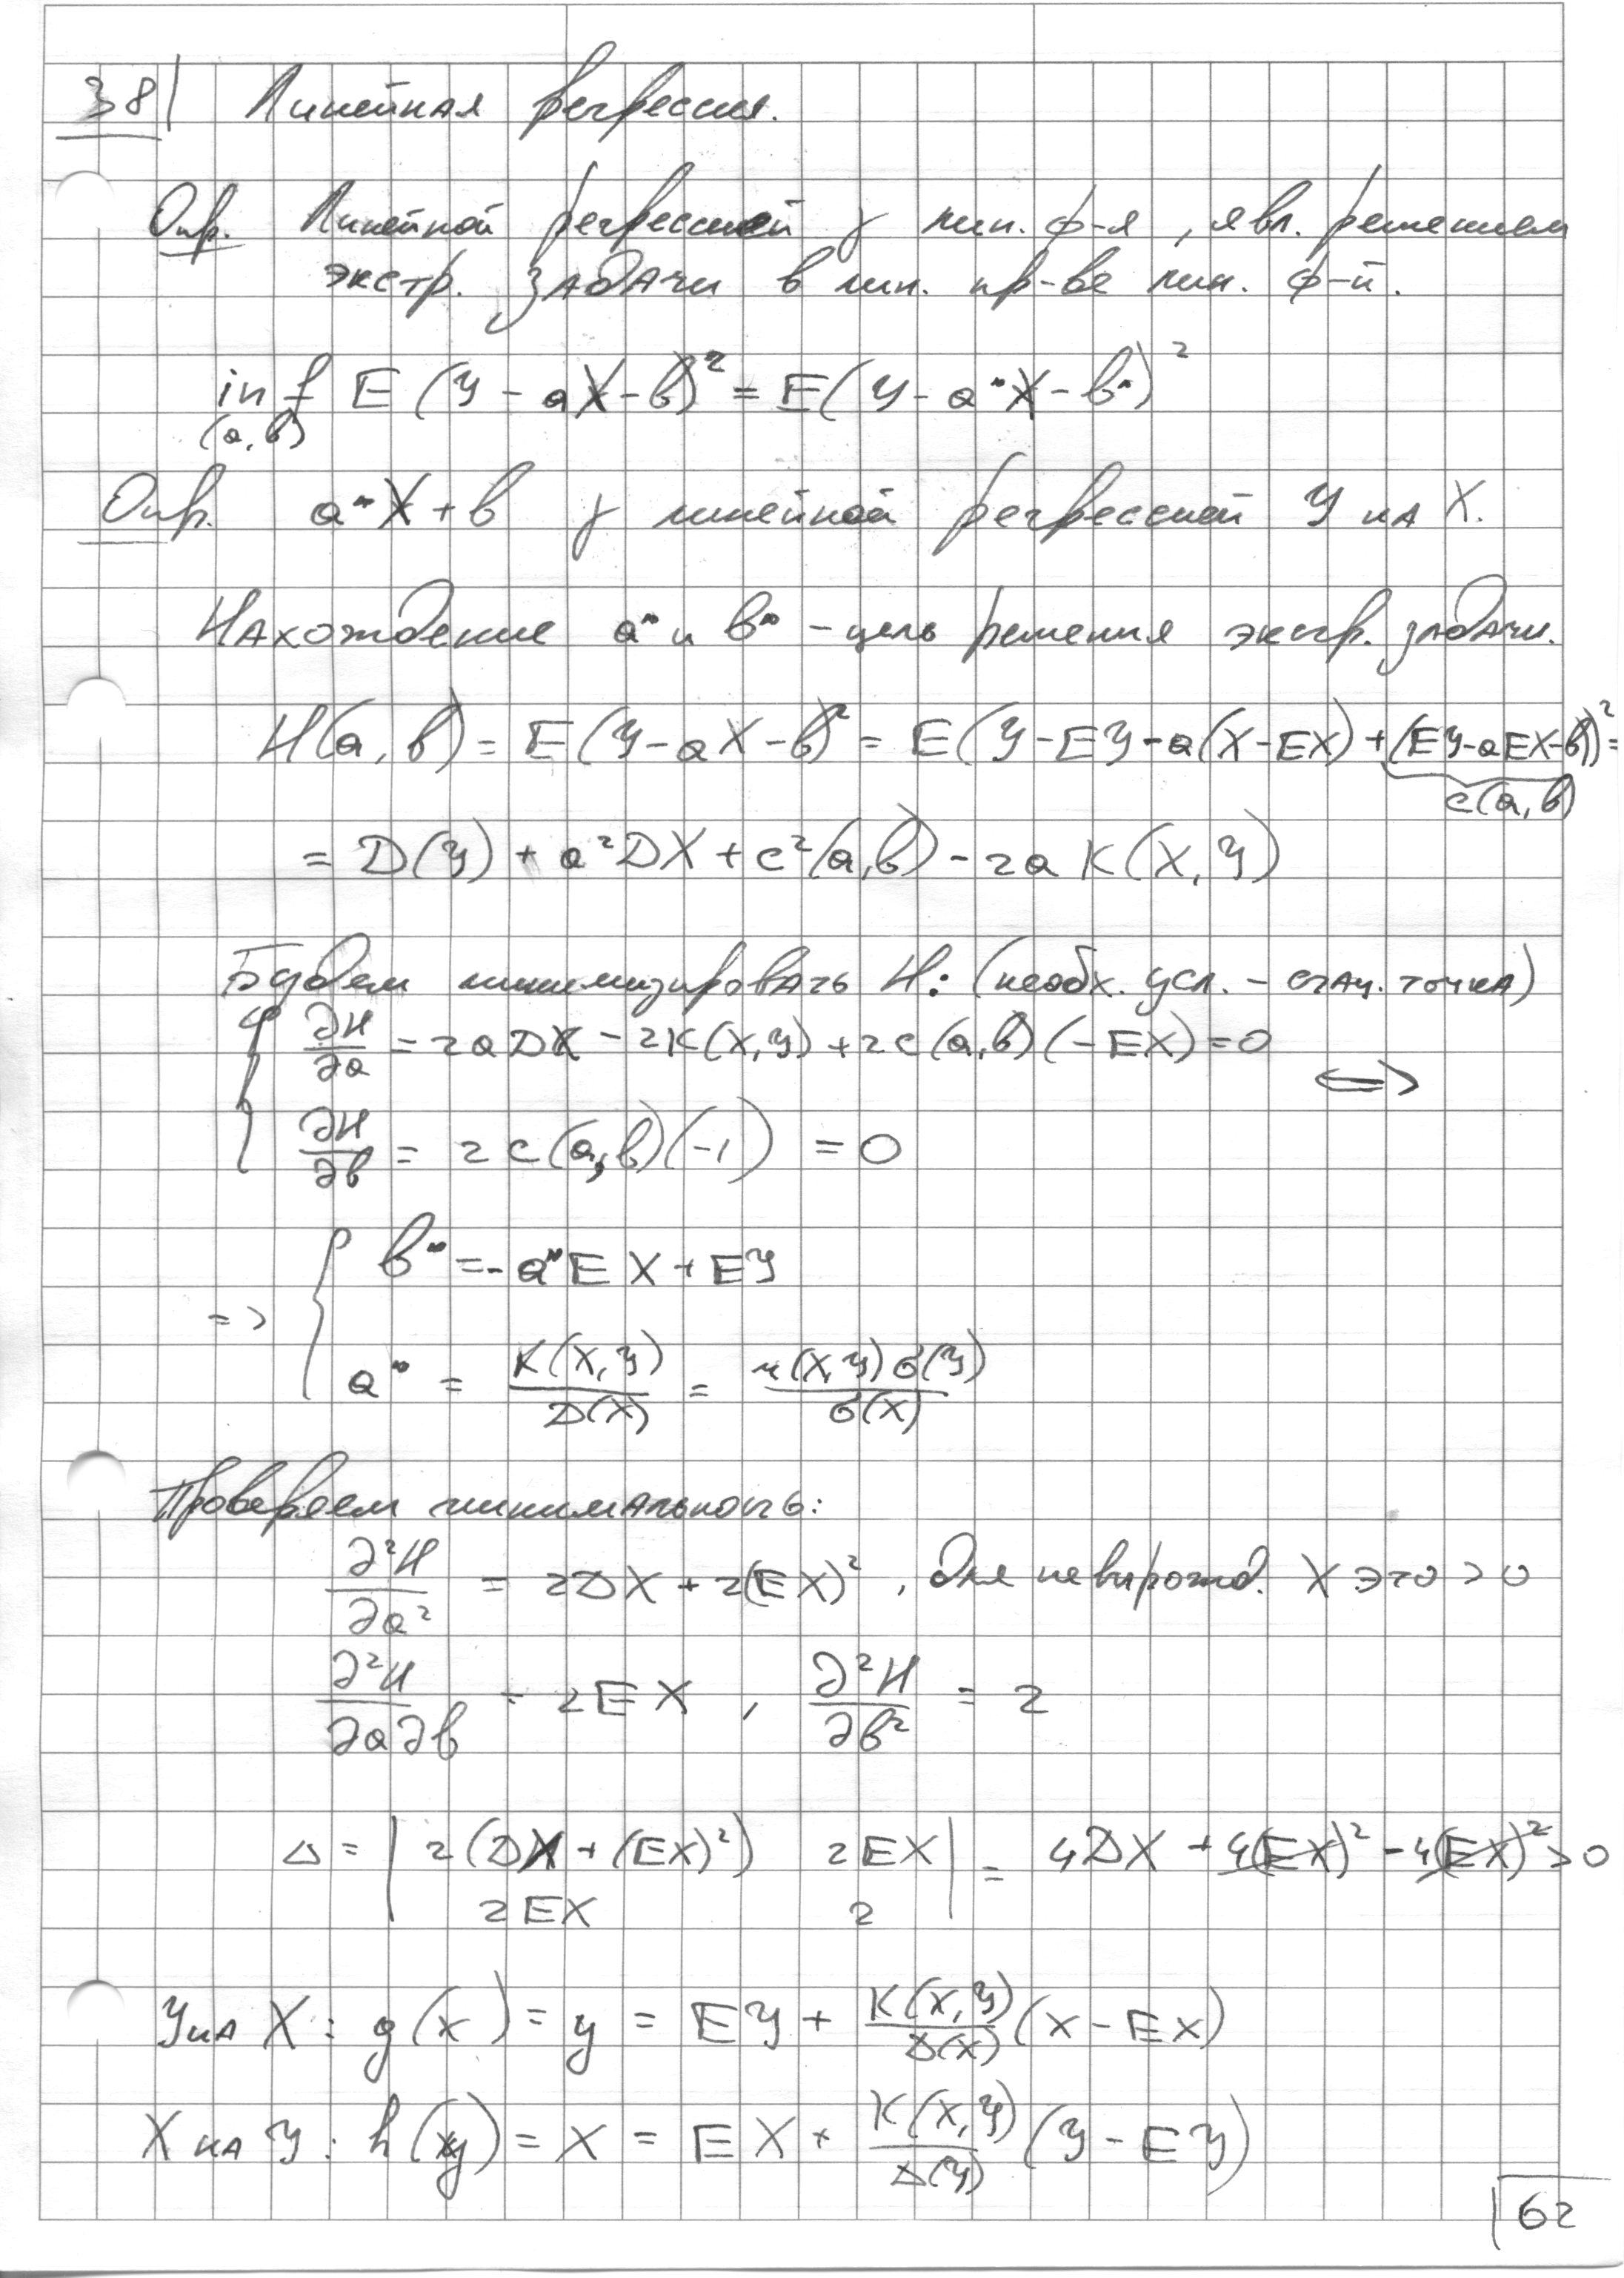 38| Линейная регрессия.
Опр. Линейной регрессией γ лин. ф-я, явл. решением
экстр. задачи в лин. пр-ве лин. ф-й.
inf E(Y - aX - b)² = E(Y - a*X - b*)²
(a, b)
Опр. a*X + b γ линейной регрессией Y на X.
Нахождение a* и b* - цель решения экстр. задачи.
H(a, b) = E(Y - aX - b)² = E(Y - EY - a(X - EX) + (EY - aEX - b))² =
c(a, b)
= D(Y) + a²DX + c²(a, b) - 2a K(X, Y)
Будем минимизировать H: (необх. усл. - стац. точка)
{ ∂H/∂a = 2aDX - 2K(X, Y) + 2c(a, b)(-EX) = 0 <=>
∂H/∂b = 2c(a, b)(-1) = 0
=> { b* = -a*EX + EY
a* = K(X, Y)/D(X) = r(X, Y)σ(Y)/σ(X)
Проверяем минимальность:
∂²H/∂a² = 2DX + 2(EX)², для невырожд. X это > 0
∂²H/∂a∂b = 2EX, ∂²H/∂b² = 2
Δ = | 2(DX + (EX)²) 2EX | = 4DX + 4(EX)² - 4(EX)² > 0
2EX 2
Y на X: g(x) = y = EY + K(X, Y)/D(X) (x - EX)
X на Y: h(y) = X = EX + K(X, Y)/D(Y) (Y - EY)
62